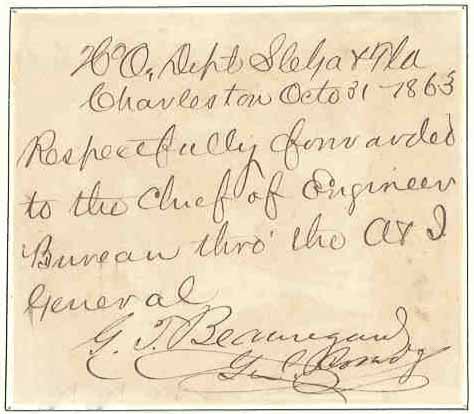 Hd Qr. Dept S C Ga & Fla
Charleston Octo 31 - 1863
Respectfully forwarded
to the Chief of Engineer
Bureau thro' the A & I
General
G. T. Beauregard
Genl. Comdg